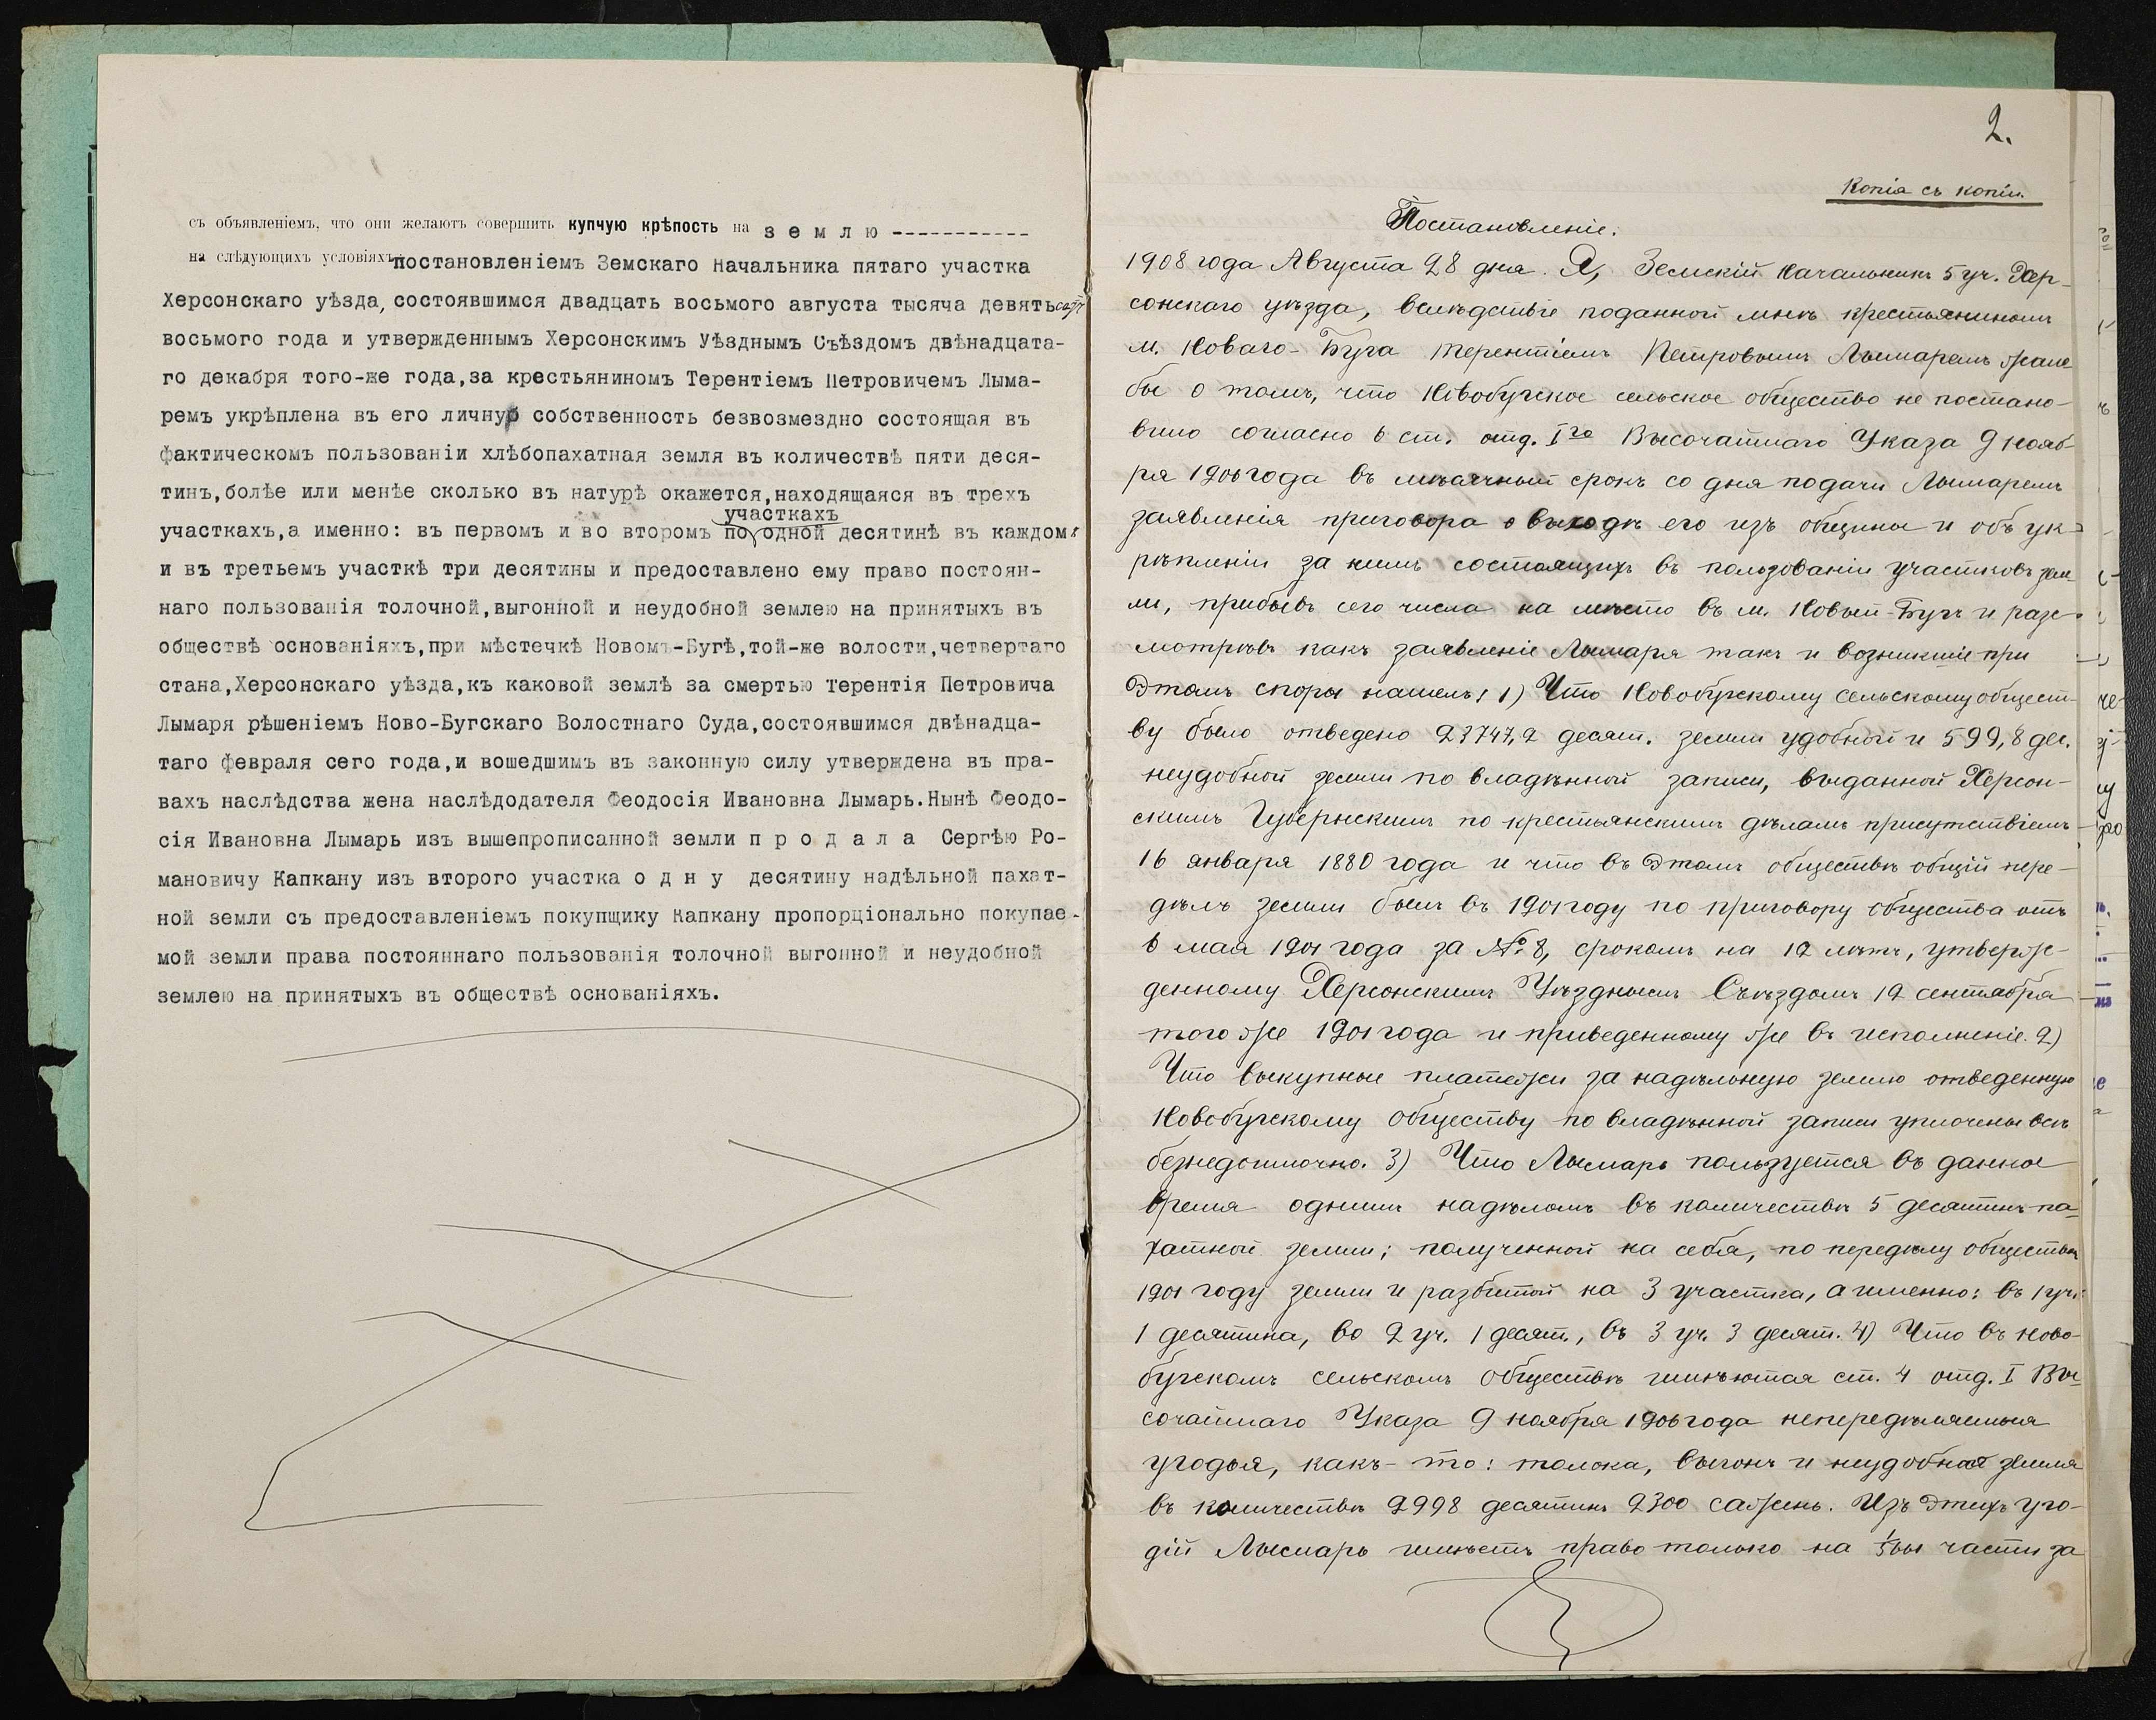 съ объявленіемъ, что они желаютъ совершить купчую крѣпость на з е м л ю -----------
на слѣдующихъ условіяхъ: постановленіемъ Земскаго Начальника пятаго участка
Херсонскаго уѣзда, состоявшимся двадцать восьмого августа тысяча девятьсотъ
восьмого года и утвержденнымъ Херсонскимъ Уѣзднымъ Съѣздомъ двѣнадцата-
го декабря того-же года,за крестьяниномъ Терентіемъ Петровичемъ Лыма-
ремъ укрѣплена въ его личную собственность безвозмездно состоящая въ
фактическомъ пользованіи хлѣбопахатная земля въ количествѣ пяти деся-
тинъ,болѣе или менѣе сколько въ натурѣ окажется,находящаяся въ трехъ
участкахъ
участкахъ,а именно: въ первомъ и во второмъ по одной десятинѣ въ каждомъ
и въ третьемъ участкѣ три десятины и предоставлено ему право постоян-
наго пользованія толочной,выгонной и неудобной землею на принятыхъ въ
обществѣ основаніяхъ,при мѣстечкѣ Новомъ-Бугѣ,той-же волости,четвертаго
стана,Херсонскаго уѣзда,къ каковой землѣ за смертью Терентія Петровича
Лымаря рѣшеніемъ Ново-Бугскаго Волостнаго Суда,состоявшимся двѣнадца-
таго февраля сего года,и вошедшимъ въ законную силу утверждена въ пра-
вахъ наслѣдства жена наслѣдодателя Феодосія Ивановна Лымарь.Нынѣ Феодо-
сія Ивановна Лымарь изъ вышепрописанной земли п р о д а л а Сергѣю Ро-
мановичу Капкану изъ второго участка о д н у десятину надѣльной пахат-
ной земли съ предоставленіемъ покупщику Капкану пропорціонально покупае-
мой земли права постояннаго пользованія толочной выгонной и неудобной
землею на принятыхъ въ обществѣ основаніяхъ.
2.
Копія съ копіи.
Постановленіе.
1908 года Августа 28 дня. Я, Земскій Начальникъ 5 уч. Хер-
сонскаго уѣзда, вслѣдствіе поданной мнѣ крестьяниномъ
м. Новаго-Буга Терентіемъ Петровымъ Лымаремъ жало
бы о томъ, что Новобугское сельское общество не постано-
вило согласно 6 ст. отд. Iго Высочайшаго Указа 9 нояб-
ря 1906 года въ мѣсячный срокъ со дня подачи Лымаремъ
заявленія приговора о выходѣ его изъ общины и объ ук-
рѣпленіи за нимъ состоящихъ въ пользованіи участковъ зем
ли, прибывъ сего числа на мѣсто въ м. Новый-Бугъ и раз-
смотрѣвъ какъ заявленіе Лымаря такъ и возникшіе при
этомъ споры нашелъ: 1) Что Новобугскому сельскому общест-
ву было отведено 23747,2 десят. земли удобной и 599,8 дес.
неудобной земли по владѣнной записи, выданной Херсон-
скимъ Губернскимъ по крестьянскимъ дѣламъ присутствіемъ
16 января 1880 года и что въ этомъ обществѣ общій пере-
дѣлъ земли былъ въ 1901 году по приговору общества отъ
6 мая 1901 года за № 8, срокомъ на 12 лѣтъ, утверж-
денному Херсонскимъ Уѣзднымъ Съѣздомъ 12 сентября
того же 1901 года и приведенному же въ исполненіе. 2)
Что выкупные платежи за надѣльную землю отведенную
Новобугскому обществу по владѣнной записи уплочены всѣ
безнедоимочно. 3) Что Лымарь пользуется въ данное
время однимъ надѣломъ въ количествѣ 5 десятинъ па-
хатной земли; полученной на себя, по передѣлу общества
1901 году земли и разбитой на 3 участка, а именно: въ 1 уч.
1 десятина, во 2 уч. 1 десят., въ 3 уч. 3 десят. 4) Что въ Ново-
бугскомъ сельскомъ обществѣ имѣются ст. 4 отд. I Вы-
сочайшаго Указа 9 ноября 1906 года непередѣляемыя
угодья, какъ-то: толока, выгонъ и неудобная земля
въ количествѣ 2998 десятинъ 2300 сажень. Изъ этихъ уго-
дій Лымарь имѣетъ право только на части за